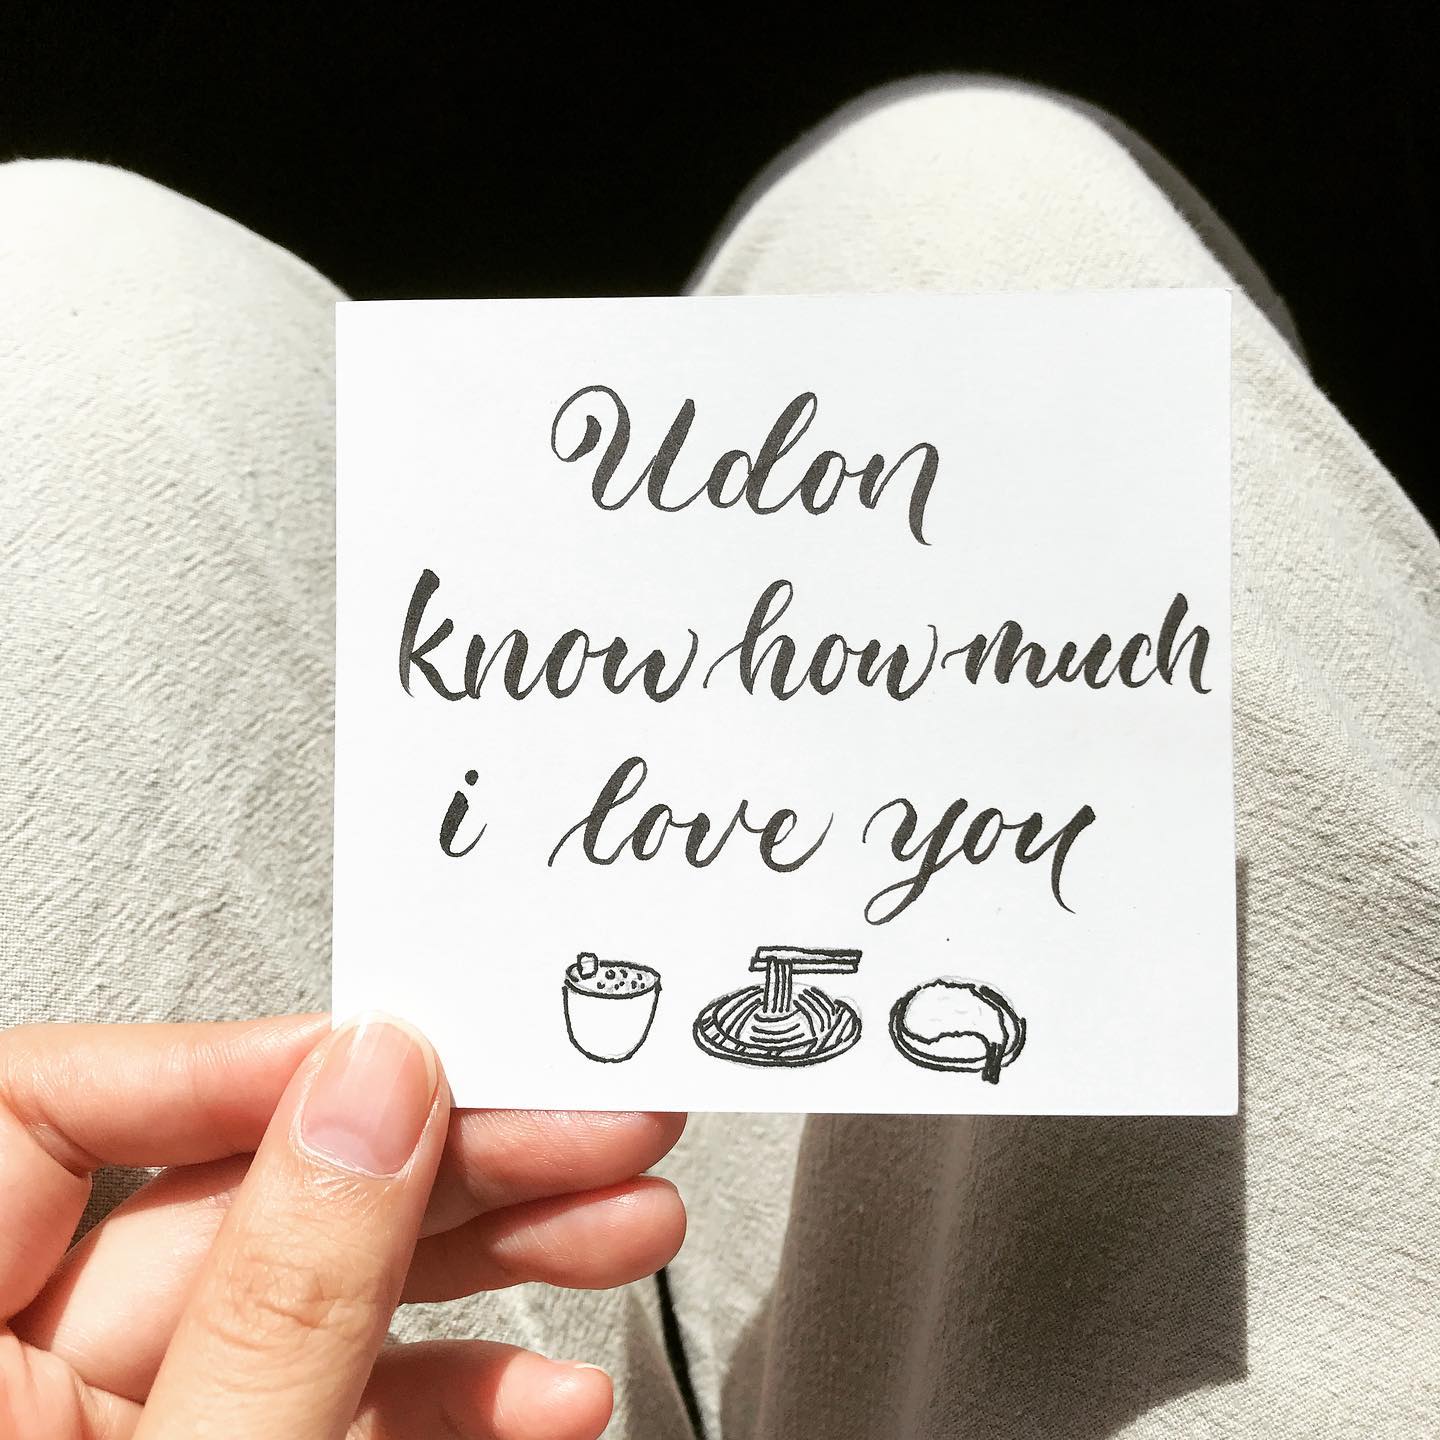 Udon
know how much
i love you